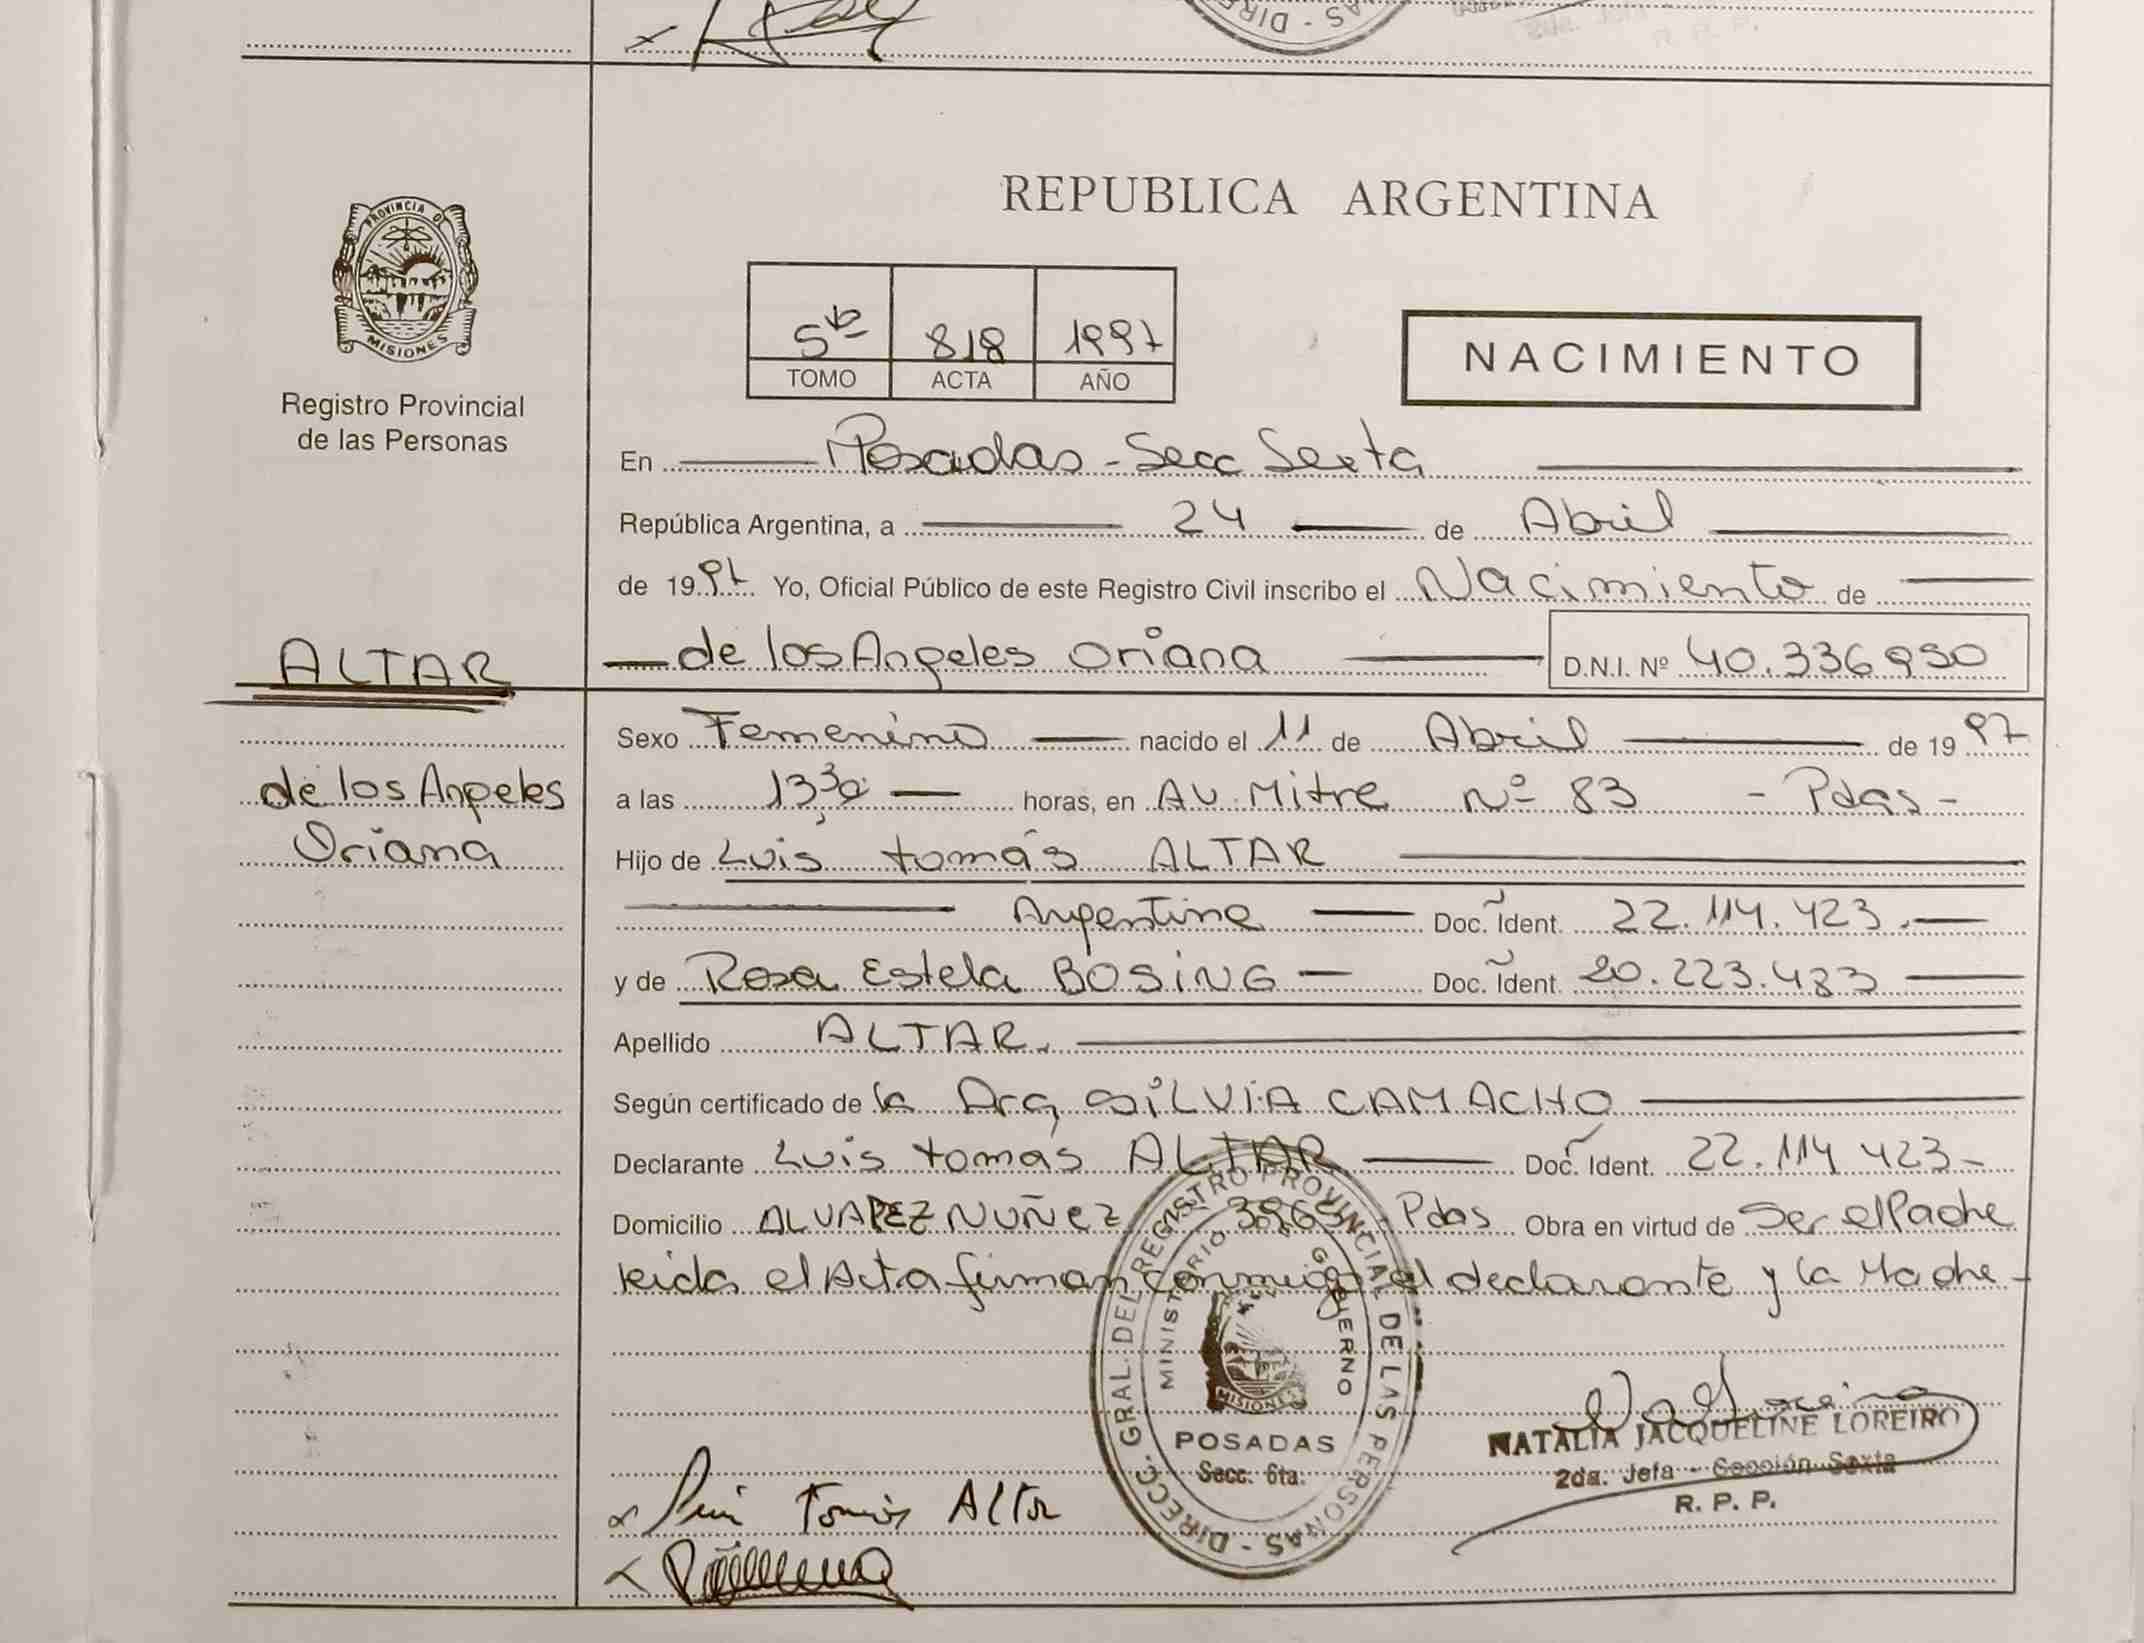 PROVINCIA DE
MISIONES
Registro Provincial
de las Personas
REPUBLICA ARGENTINA
5to 818 1997
TOMO ACTA AÑO
NACIMIENTO
En Posadas - Secc Sexta
República Argentina, a 24 de Abril
de 1997 Yo, Oficial Público de este Registro Civil inscribo el Nacimiento de
ALTAR
de los Angeles Oriana D.N.I. Nº 40.336950
de los Angeles
Oriana
Sexo Femenino nacido el 11 de Abril de 1997
a las 13,30 horas, en AV. Mitre Nº 83 - Pdas -
Hijo de Luis tomás ALTAR
Argentina Doc. Ident. 22.114.423.
y de Rosa Estela BOSiNG Doc. Ident. 20.223.483
Apellido ALTAR.
Según certificado de la SiLViA CAMACHO
Declarante Luis tomás ALTAR Doc. Ident. 22.114 423 -
Domicilio ALVAREZ NUÑEZ Pdas Obra en virtud de Ser el Padre
Leida el Acta firman conmigo el declarante y la Madre -
DIRECC. GRAL. DEL REGISTRO PROVINCIAL DE LAS PERSONAS -
MINISTERIO GOBIERNO
MISIONES
POSADAS
Secc. 6ta.
NATALIA JACQUELINE LOREIRO
2da. Jefa - Sección Sexta
R. P. P.
x Luis Tomás Altar